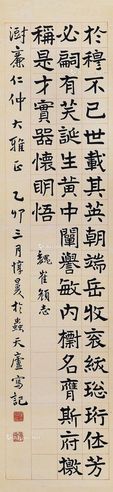 於穆不已世載其英朝端岳牧袞紱璁珩休芳
必嗣有美誕生黃中闡譽敏內標名膺斯府檄
稱是才實器懷明悟
魏崔頠志
仁仲大雅正 乙卯三月於蟲天廬寫記